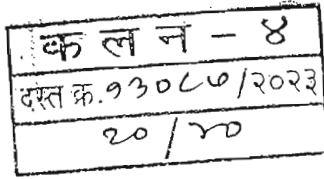 क ल न - ४
दस्त क्र. १३०८७/२०२३
२० /